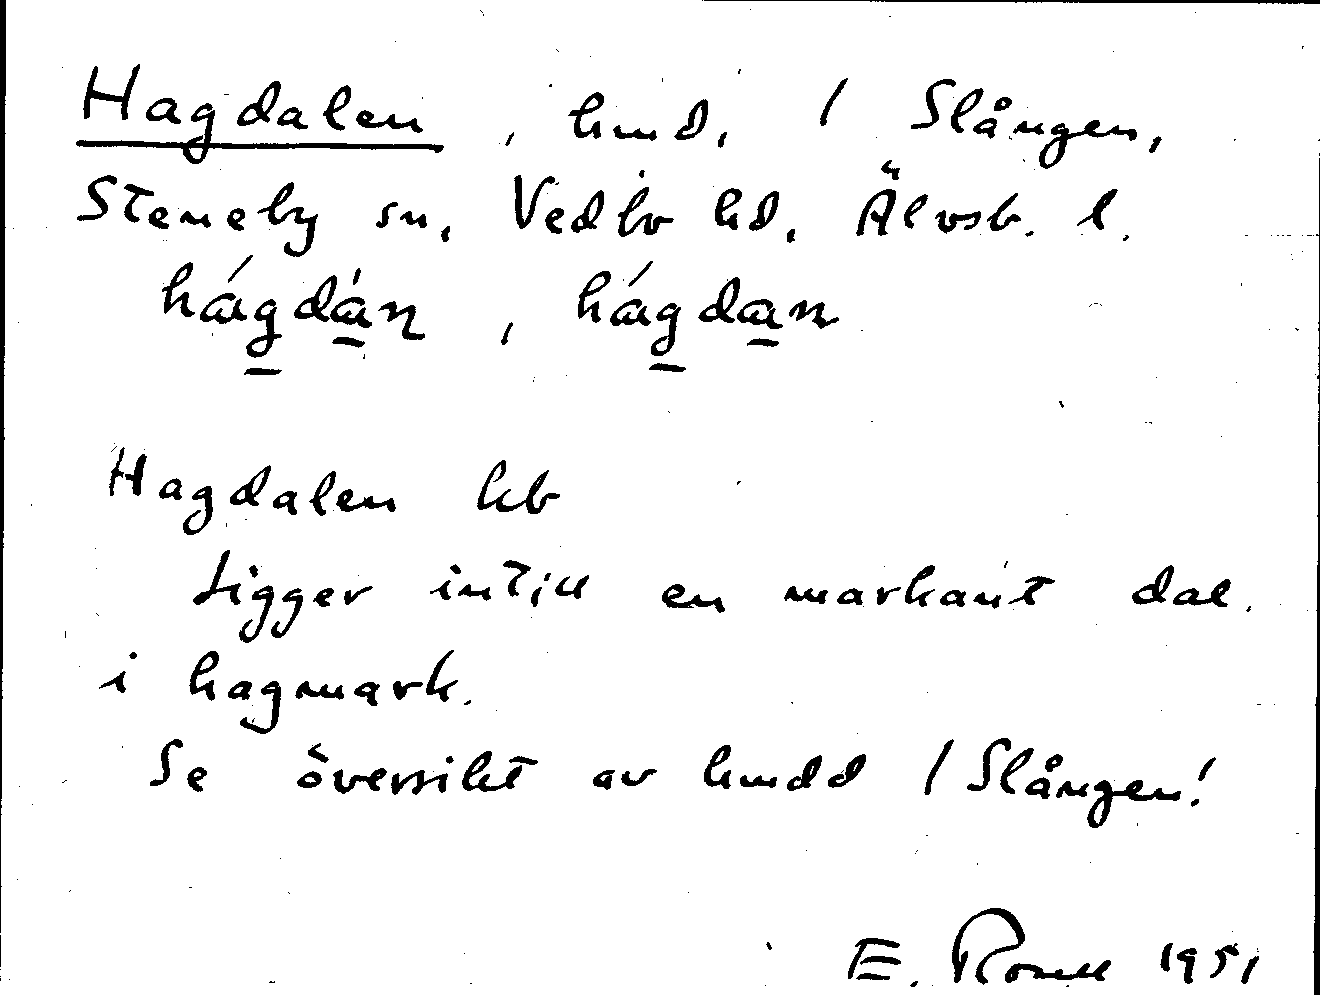 Hagdalen, hmd, / Slången,
Steneby sn, Vedbo hd, Älvsb. l.
hágdán, hágdan
Hagdalen hb
Ligger intill en markant dal.
i hagmark.
Se översikt av hmdd / Slången!
E. Rosell 1951